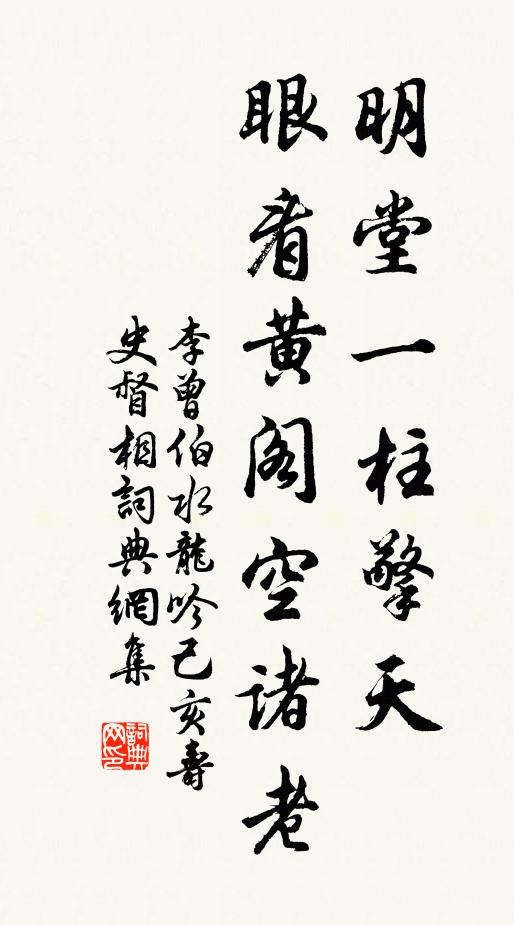 明堂一柱擎天
眼看黃阁空諸老
李曾伯水龍吟己亥壽
史督相詞典網集
詞典
网印